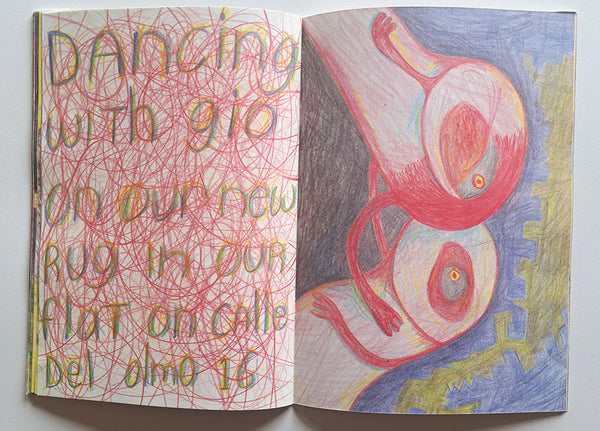 DAncing
with gio
on our new
Rug in our
flat on calle
Del olmo 16